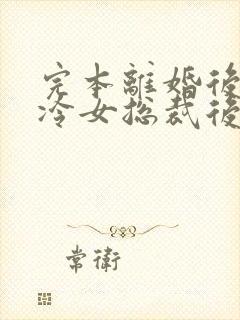 完本離婚後
冷女总裁後
常衛